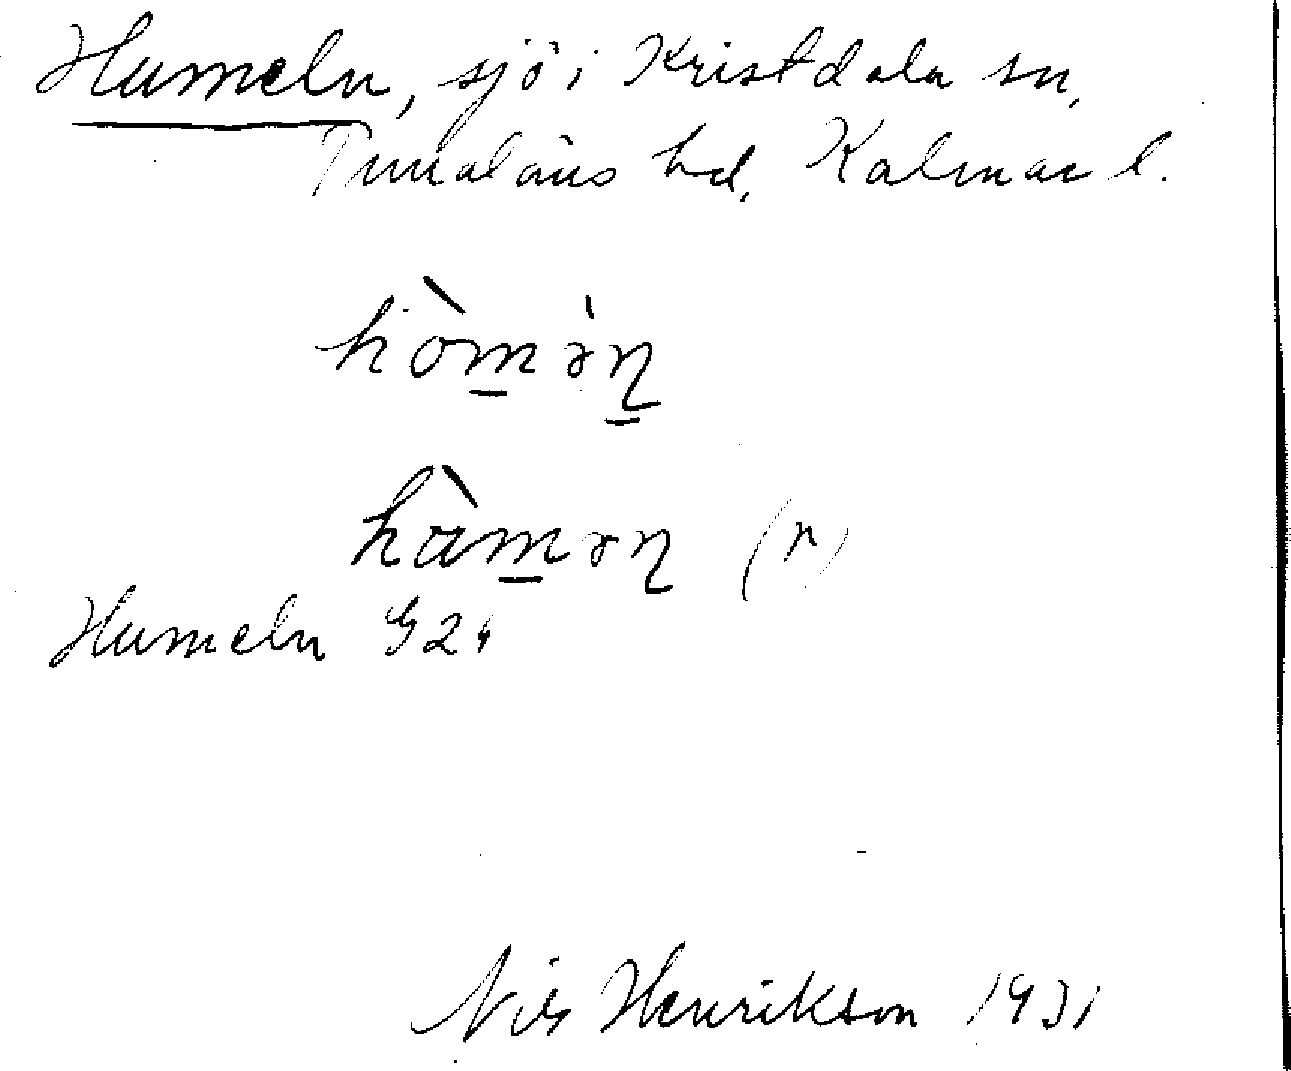 Humeln, sjö i Kristdala sn,
Tunaläns hd, Kalmar l.
hòmə̀ɳ
hàməɳ (r)
Humeln G24
Nils Henrikson 1931